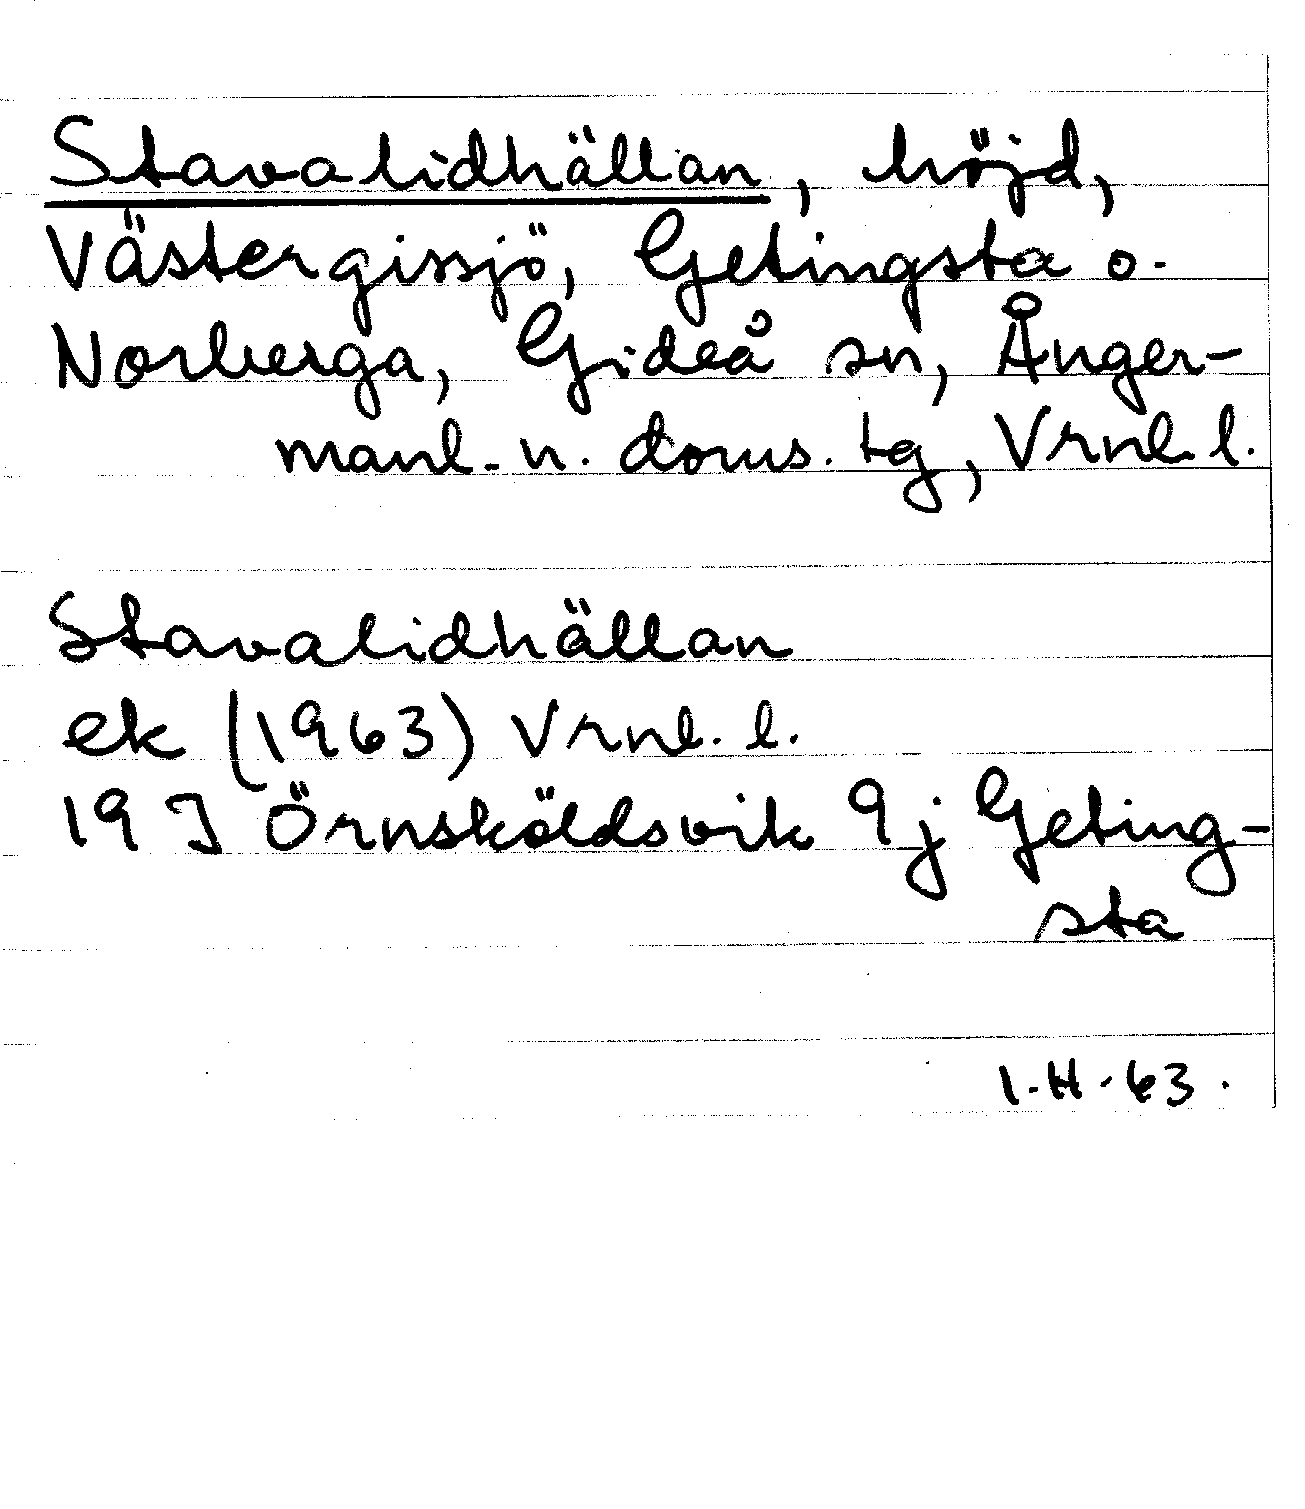 Stavalidhällan, höjd,
Västergissjö, Getingsta o.
Norberga, Gideå sn, Ånger-
manl. n. doms. tg, Vrnl. l.
Stavalidhällan
ek (1963) Vrnl. l.
19 J Örnsköldsvik 9j Geting-
sta
I.H.63.